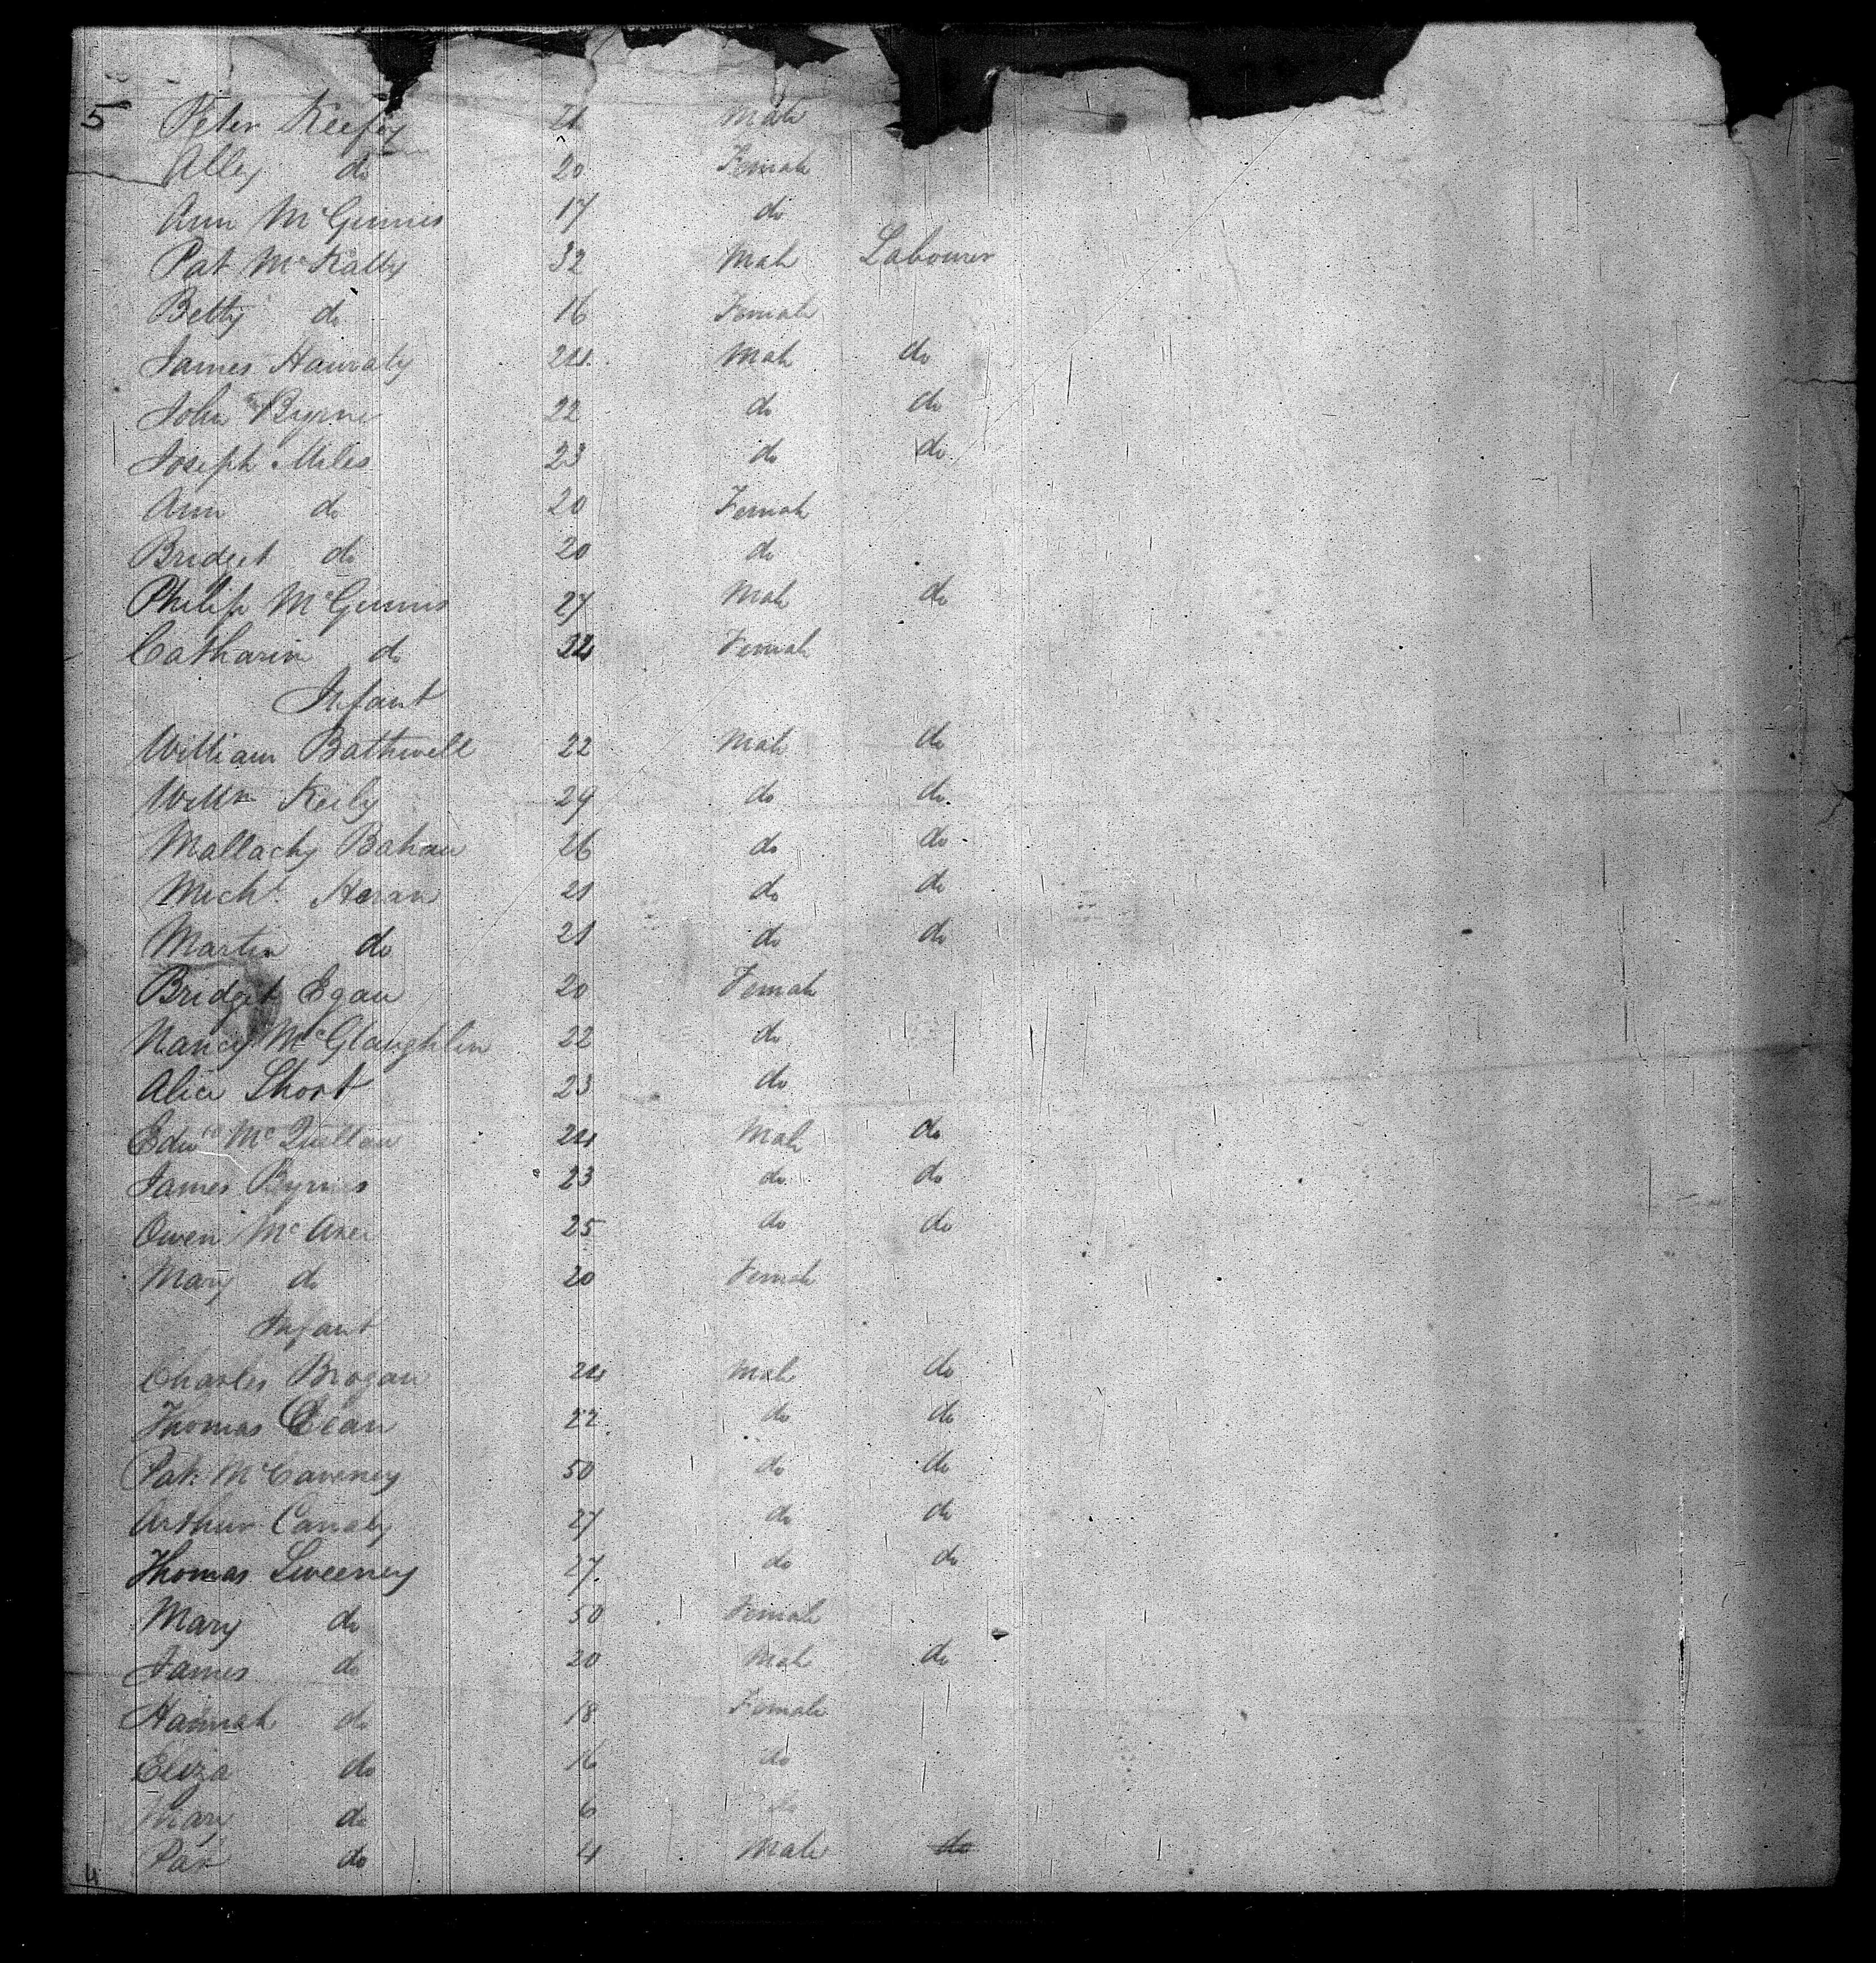 5 Peter Keefey 21 Male
Alley do 20 Female
Ann McGinnis 17 do
Pat McKally 32 Male Labourer
Betty do 16 Female
James Hanraty 24 Male do
John Byrne 22 do do
Joseph Miles 23 do do
Ann do 20 Female
Bridget do 20 do
Philip McGinnis 27 Male do
Catharine do 22 Female
Infant
William Bathwell 22 Male do
Willm Keily 29 do do
Mallachy Bahan 26 do do
Michl. Horan 21 do do
Martin do 21 do do
Bridget Egan 20 Female
Nancy McGlaughlin 22 do
Alice Short 23 do
Edwd McQuillan 24 Male do
James Byrnes 23 do do
Owen McAnee 25 do do
Mary do 20 Female
Infant
Charles Brogan 24 Male do
Thomas Cean 22 do do
Pat. McCaveney 50 do do
Arthur Canaly 27 do do
Thomas Sweeney 27 do do
Mary do 50 Female
James do 20 Male do
Hannah do 18 Female
Eliza do 16 do
Mary do 6 do
Pat do 4 Male do
4